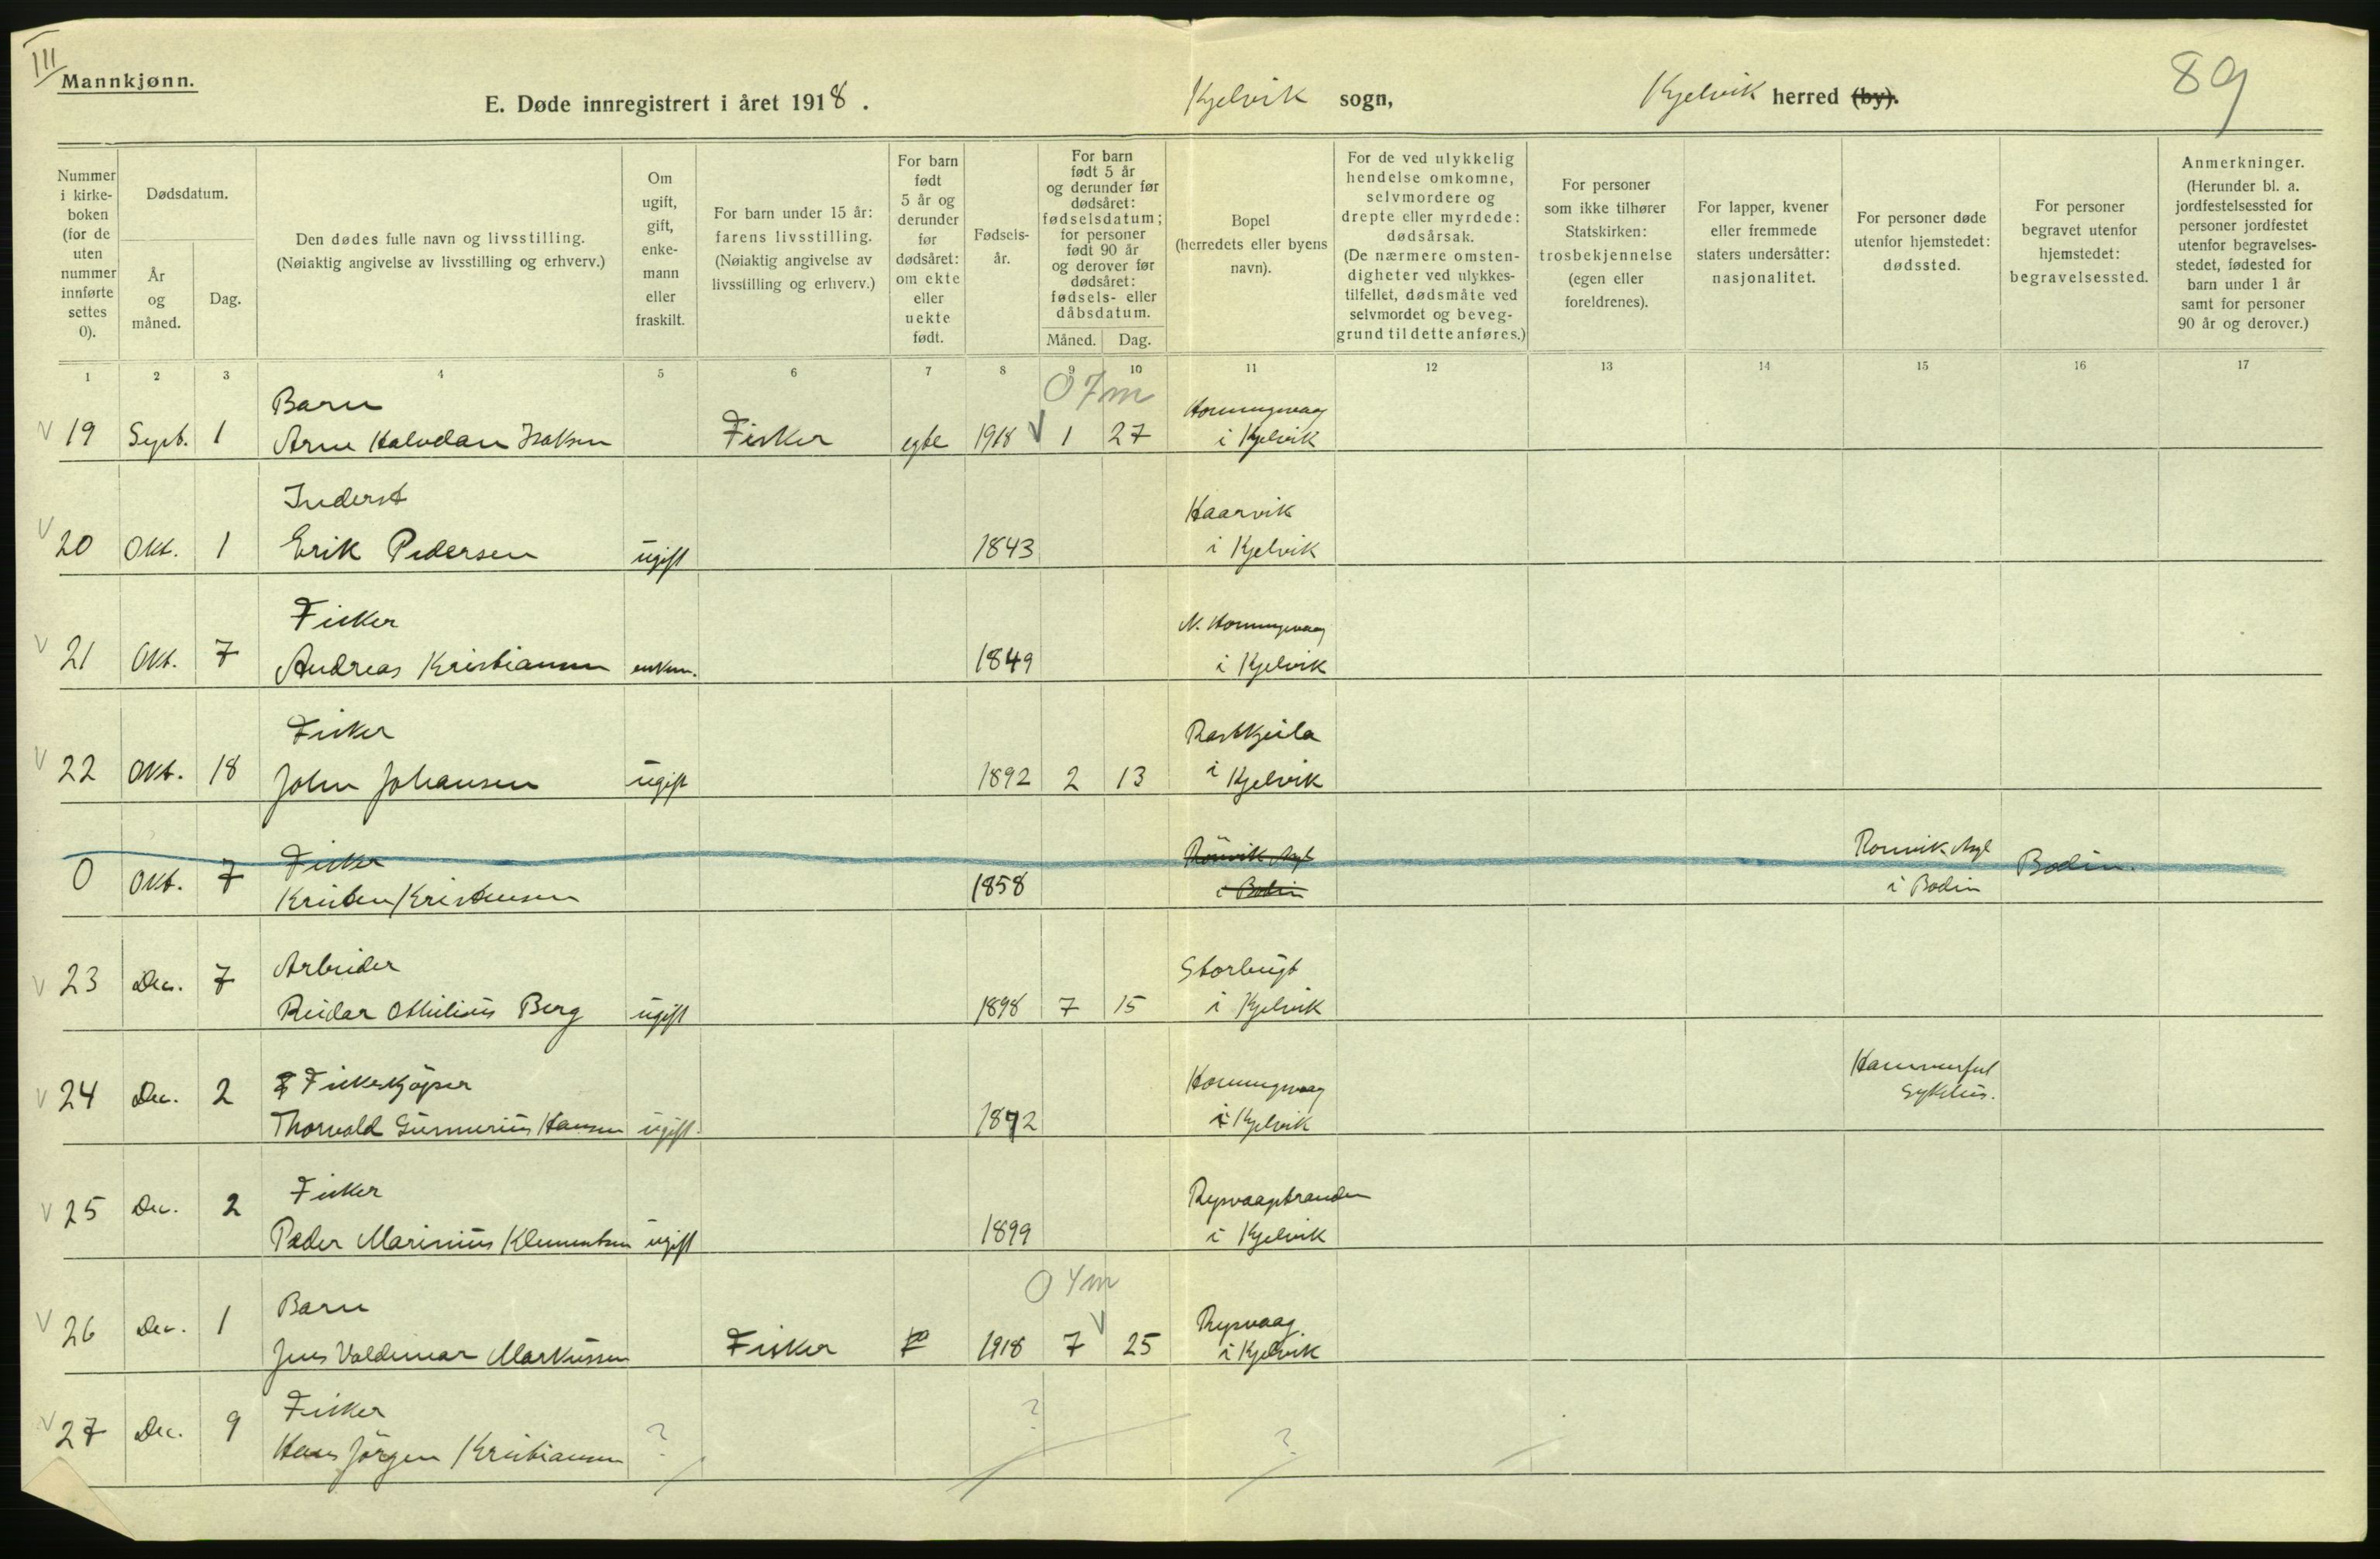 III
Mannkjønn.
E. Døde innregistrert i året 1918.
Kjelvik sogn,
Kjelvik herred (by).
89
Nummer i kirke-boken (for de uten nummer innførte settes 0).
Dødsdatum.
År og måned.
Dag.
Den dødes fulle navn og livsstilling.
(Nøiaktig angivelse av livsstilling og erhverv.)
Om ugift, gift, enke-mann eller fraskilt.
For barn under 15 år: farens livsstilling.
(Nøiaktig angivelse av livsstilling og erhverv.)
For barn født 5 år og derunder før dødsåret: om ekte eller uekte født.
Fødsels-år.
For barn født 5 år og derunder før dødsåret: fødselsdatum; for personer født 90 år og derover før dødsåret: fødsels- eller dåbsdatum.
Måned. Dag.
Bopel
(herredets eller byens navn).
For de ved ulykkelig hendelse omkomne, selvmordere og drepte eller myrdede: dødsårsak.
(De nærmere omsten-digheter ved ulykkes-tilfellet, dødsmåte ved selvmordet og beveg-grund til dette anføres.)
For personer som ikke tilhører Statskirken: trosbekjennelse
(egen eller foreldrenes).
For lapper, kvener eller fremmede staters undersåtter: nasjonalitet.
For personer døde utenfor hjemstedet: dødssted.
For personer begravet utenfor hjemstedet: begravelsessted.
Anmerkninger.
(Herunder bl. a. jordfestelsessted for personer jordfestet utenfor begravelses-stedet, fødested for barn under 1 år samt for personer 90 år og derover.)
1 2 3 4 5 6 7 8 9 10 11 12 13 14 15 16 17
Barn 0 7m Honningsvaag
V 19 Sept. 1 Arne Halvdan Isaksen Fisker egte 1918 V 1 27 i Kjelvik
Inderst Kaarvik
V 20 Okt. 1 Erik Pedersen ugift 1843 i Kjelvik
Fisker N. Honningsvaag
V 21 Okt. 7 Andreas Kristiansen enkem. 1849 i Kjelvik
Fisker
V 22 Okt. 18 John Johansen ugift 1892 2 13 i Kjelvik
Fisker Rønvik Asyl Ronvik Asyl
0 Okt. 7 Kristen Kristensen 1858 i Bodin i Bodin Bodin.
Arbeider Storbugt
V 23 Dec. 7 Reidar Othilius Berg ugift 1898 7 15 i Kjelvik
Fiskekjøper Honningsvaag Hammerfest
V 24 Dec. 2 Thorvald Gunnerius Hansen ugift. 1872 i Kjelvik Sykehus.
Fisker Repvaagstranden
V 25 Dec. 2 Peder Marinius Klementsen ugift 1899 i Kjelvik
Barn 0 4m Repvaag
V 26 Dec. 1 Jens Valdemar Markussen Fisker 1918 7 V 25 i Kjelvik
Fisker ?
V 27 Dec. 9 Hans Jörgen Kristiansen ? ?